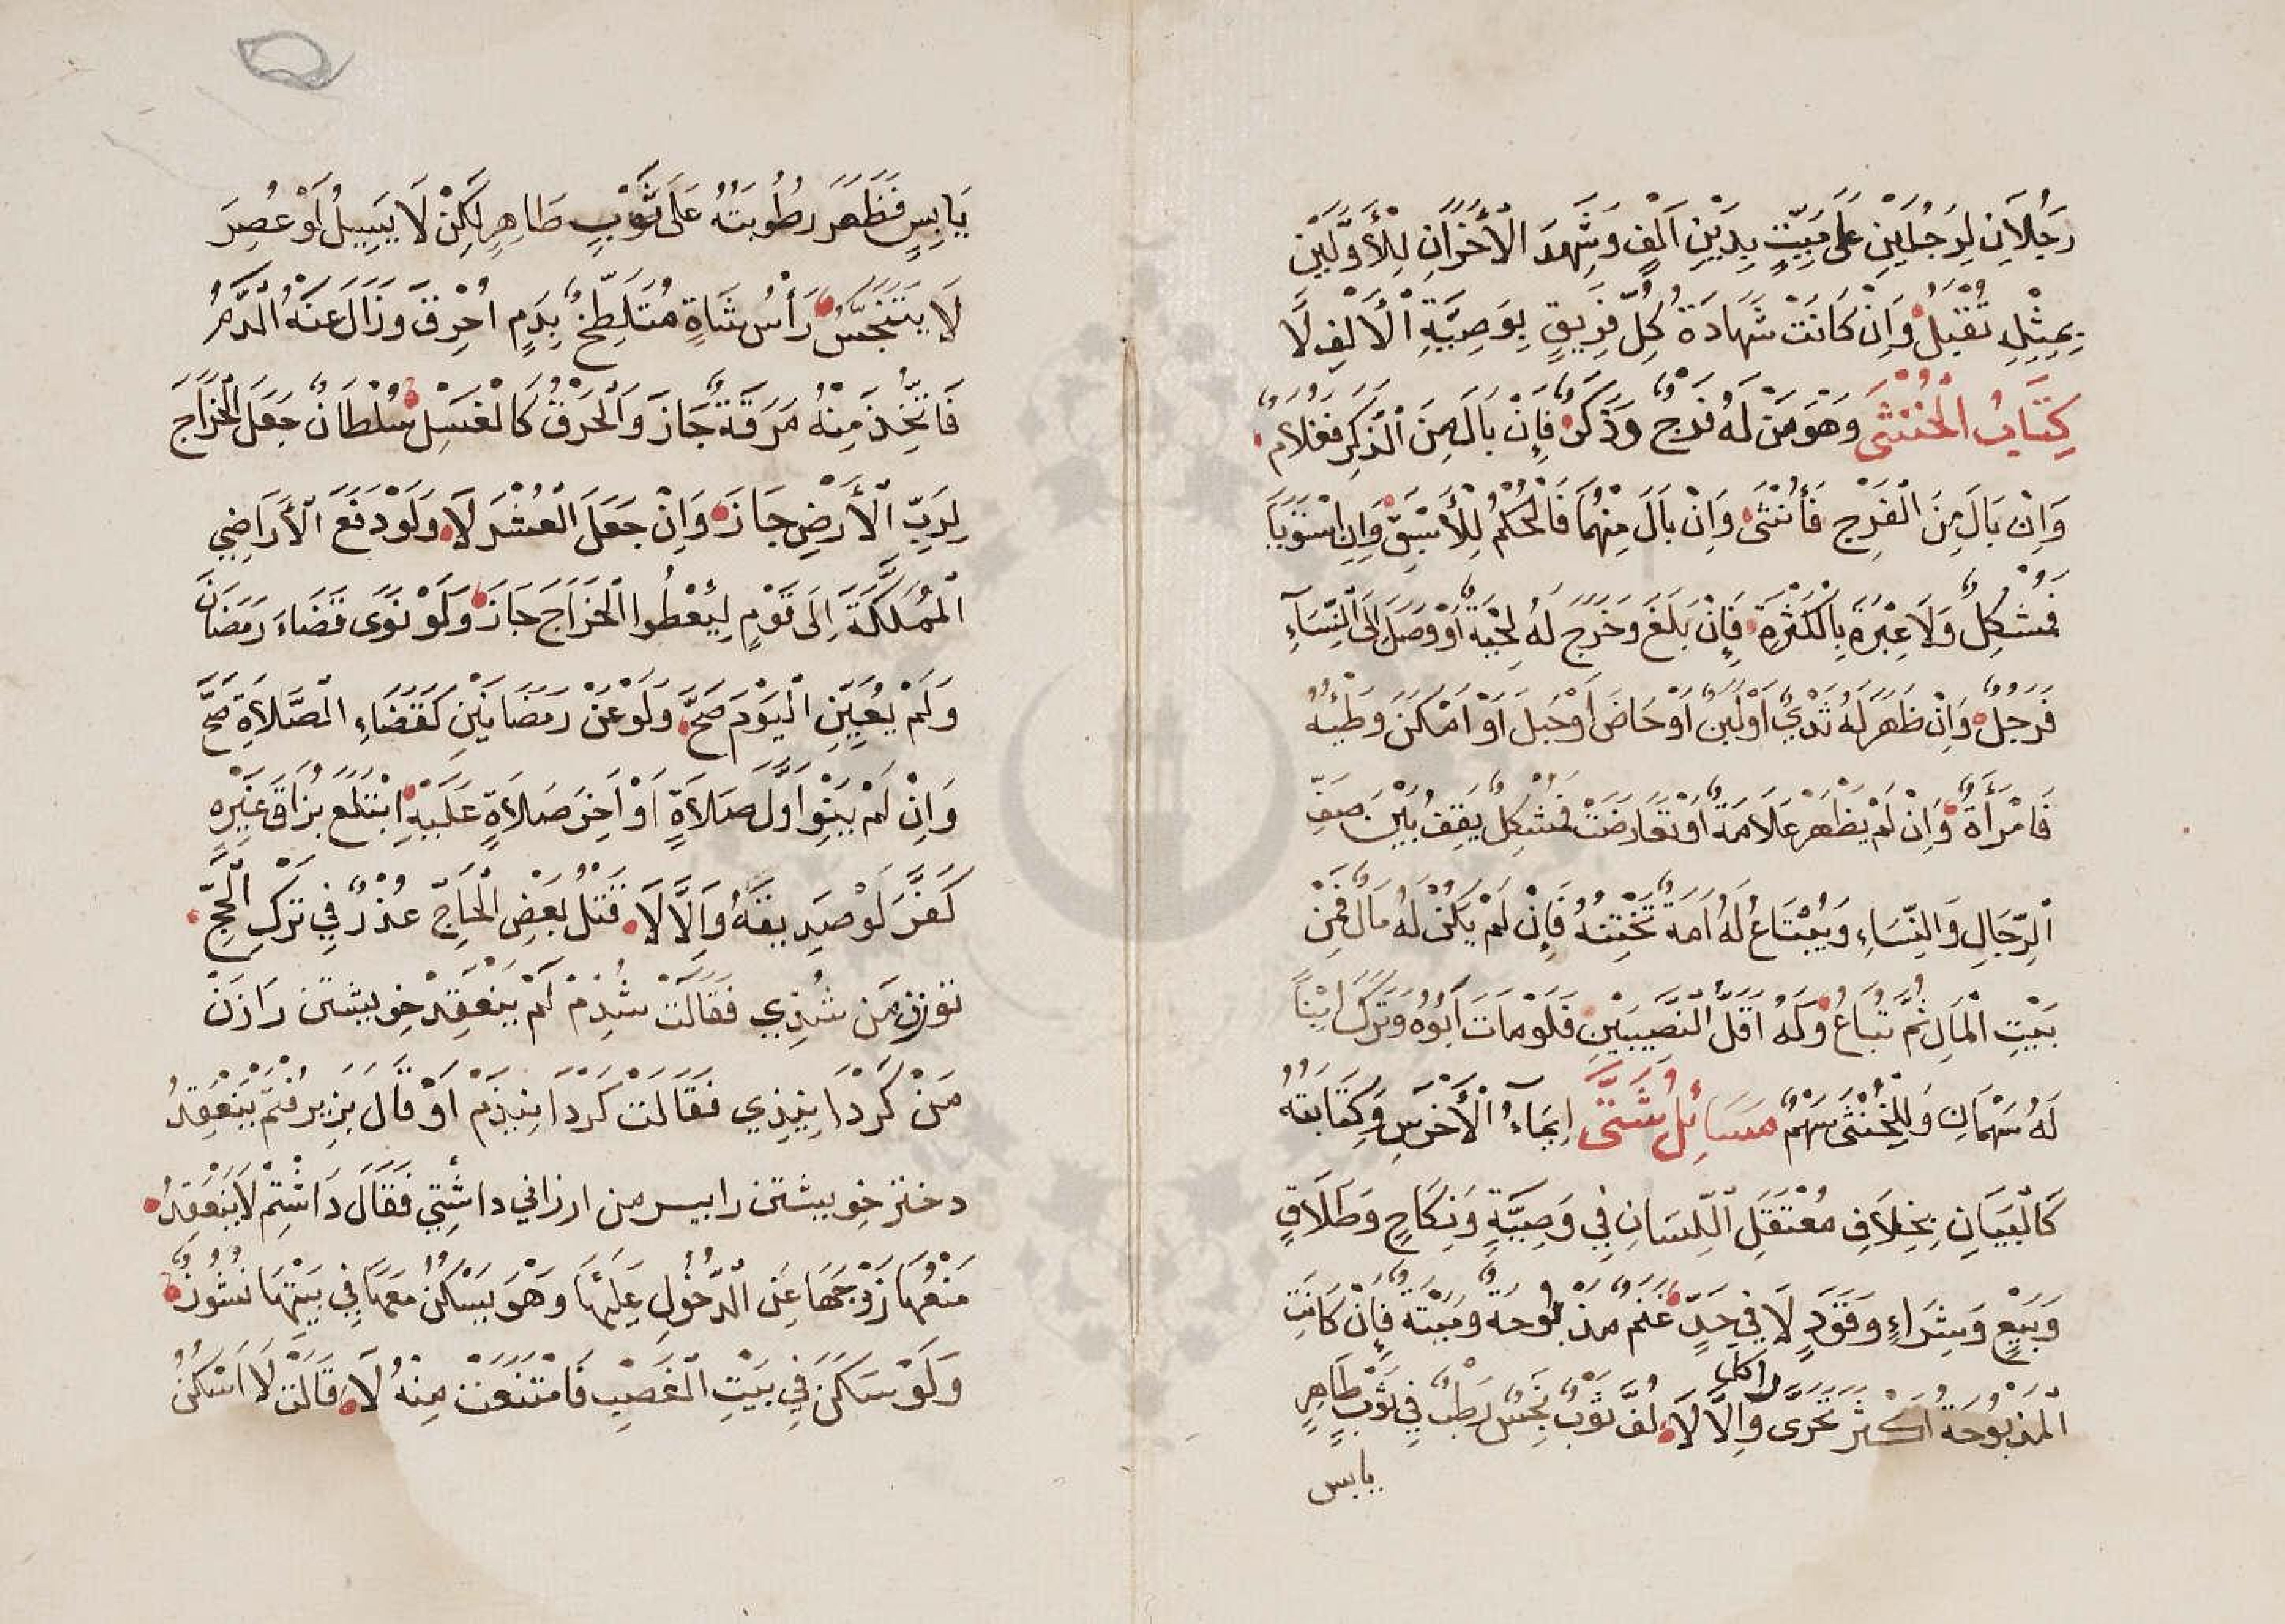 رَجُلَانِ لِرَجُلَيْنِ عَلَى مَيِّتٍ بِدَيْنِ أَلْفٍ وَشَهِدَ الْأَخَرَانِ لِلْأَوَّلَيْنِ
بِمِثْلِهِ تُقْبَلُ وَإِنْ كَانَتْ شَهَادَةُ كُلِّ فَرِيقٍ بِوَصِيَّةِ الْأَلْفِ لَا
كِتَابُ الْخُنْثَى وَهُوَ مَنْ لَهُ فَرْجٌ وَذَكَرٌ فَإِنْ بَالَ مِنَ الذَّكَرِ فَغُلَامٌ
وَإِنْ بَالَ مِنَ الْفَرْجِ فَأُنْثَى وَإِنْ بَالَ مِنْهُمَا فَالْحُكْمُ لِلْأَسْبَقِ وَإِنِ اسْتَوَيَا
فَمُشْكِلٌ وَلَا عِبْرَةَ بِالْكَثْرَةِ فَإِنْ بَلَغَ وَخَرَجَ لَهُ لِحْيَةٌ أَوْ وَصَلَ إِلَى النِّسَآءِ
فَرَجُلٌ وَإِنْ ظَهَرَ لَهُ ثَدْيٌ أَوْ لَبَنٌ أَوْ حَاضَ أَوْ حَبِلَ أَوْ أَمْكَنَ وَطْئُهُ
فَامْرَأَةٌ وَإِنْ لَمْ يَظْهَرْ عَلَامَةٌ أَوْ تَعَارَضَتْ فَمُشْكِلٌ يَقِفُ بَيْنَ صَفِّ
الرِّجَالِ وَالنِّسَاءِ وَيُبْتَاعُ لَهُ أَمَةٌ تَخْتِنُهُ فَإِنْ لَمْ يَكُنْ لَهُ مَالٌ فَمِنْ
بَيْتِ الْمَالِ ثُمَّ تُبَاعُ وَلَهُ أَقَلُّ النَّصِيبَيْنِ فَلَوْ مَاتَ أَبُوهُ وَتَرَكَ ابْنًا
لَهُ سَهْمَانِ وَلِلْخُنْثَى سَهْمٌ مَسَائِلُ شَتَّى إِيمَآءُ الْأَخْرَسِ وَكِتَابَتُهُ
كَالْبَيَانِ بِخِلَافِ مُعْتَقَلِ اللِّسَانِ فِي وَصِيَّةٍ وَنِكَاحٍ وَطَلَاقٍ
وَبَيْعٍ وَشِرَاءٍ وَقَوَدٍ لَا فِي حَدٍّ غَنَمٌ مَذْبُوحَةٌ وَمَيْتَةٌ فَإِنْ كَانَتِ
الْمَذْبُوحَةُ أَكْثَرَ تَحَرَّى وَأكل وَإِلَّا لَا لُفَّ ثَوْبٌ نَجِسٌ رَطْبٌ فِي ثَوْبٍ طَاهِرٍ
يابس
يَابِسٍ فَظَهَرَ رُطُوبَتُهُ عَلَى ثَوْبٍ طَاهِرٍ لَكِنْ لَا يَسِيلُ لَوْ عُصِرَ
لَا يَتَنَجَّسُ رَأْسُ شَاةٍ مُتَلَطِّخٌ بِدَمٍ أُحْرِقَ وَزَالَ عَنْهُ الدَّمُ
فَاتُّخِذَ مِنْهُ مَرَقَةٌ جَازَ وَالْحَرْقُ كَالْغَسْلِ سُلْطَانٌ جَعَلَ الْخَرَاجَ
لِرَبِّ الْأَرْضِ جَازَ وَإِنْ جَعَلَ الْعُشْرَ لَا وَلَوْ دَفَعَ الْأَرَاضِي
الْمُمَلَّكَةَ إِلَى قَوْمٍ لِيُعْطُوا الْخَرَاجَ جَازَ وَلَوْ نَوَى قَضَاءَ رَمَضَانَ
وَلَمْ يُعَيِّنِ الْيَوْمَ صَحَّ وَلَوْ عَنْ رَمَضَانَيْنِ كَقَضَاءِ الصَّلَاةِ صَحَّ
وَإِنْ لَمْ يَنْوِ أَوَّلَ صَلَاةٍ أَوْ أَخِرَ صَلَاةٍ عَلَيْهِ ابْتَلَعَ بُزَاقَ غَيْرِهِ
كَفَّرَ لَوْ صَدِيقَهُ وَإِلَّا لَا قَتْلُ بَعْضِ الْحَاجِّ عُذْرٌ فِي تَرْكِ الْحَجِّ
توزن مَن شُدِي فَقَالَتْ شُدَمْ لَمْ يَنْعَقِدْ خِويشتن رَا زَنْ
مَنْ كَرْدَانِيذِي فَقَالَتْ كَرْدَانِيذَمْ أَوْ قَالَ بَزِيرُفْتَمْ يَنْعَقِدُ
دختر خِويشتن رابپسر من ارزاني داشْتِي فَقَالَ دَاشْتَمْ لَا يَنْعَقِدُ
مَنْعُهَا زَوْجَهَا عَنِ الدُّخُولِ عَلَيْهَا وَهُوَ يَسْكُنُ مَعَهَا فِي بَيْتِهَا نُشُوزٌ
وَلَوْ سَكَنَ فِي بَيْتِ الْغَصْبِ فَامْتَنَعَتْ مِنْهُ لَا قَالَتْ لَا أَسْكُنُ